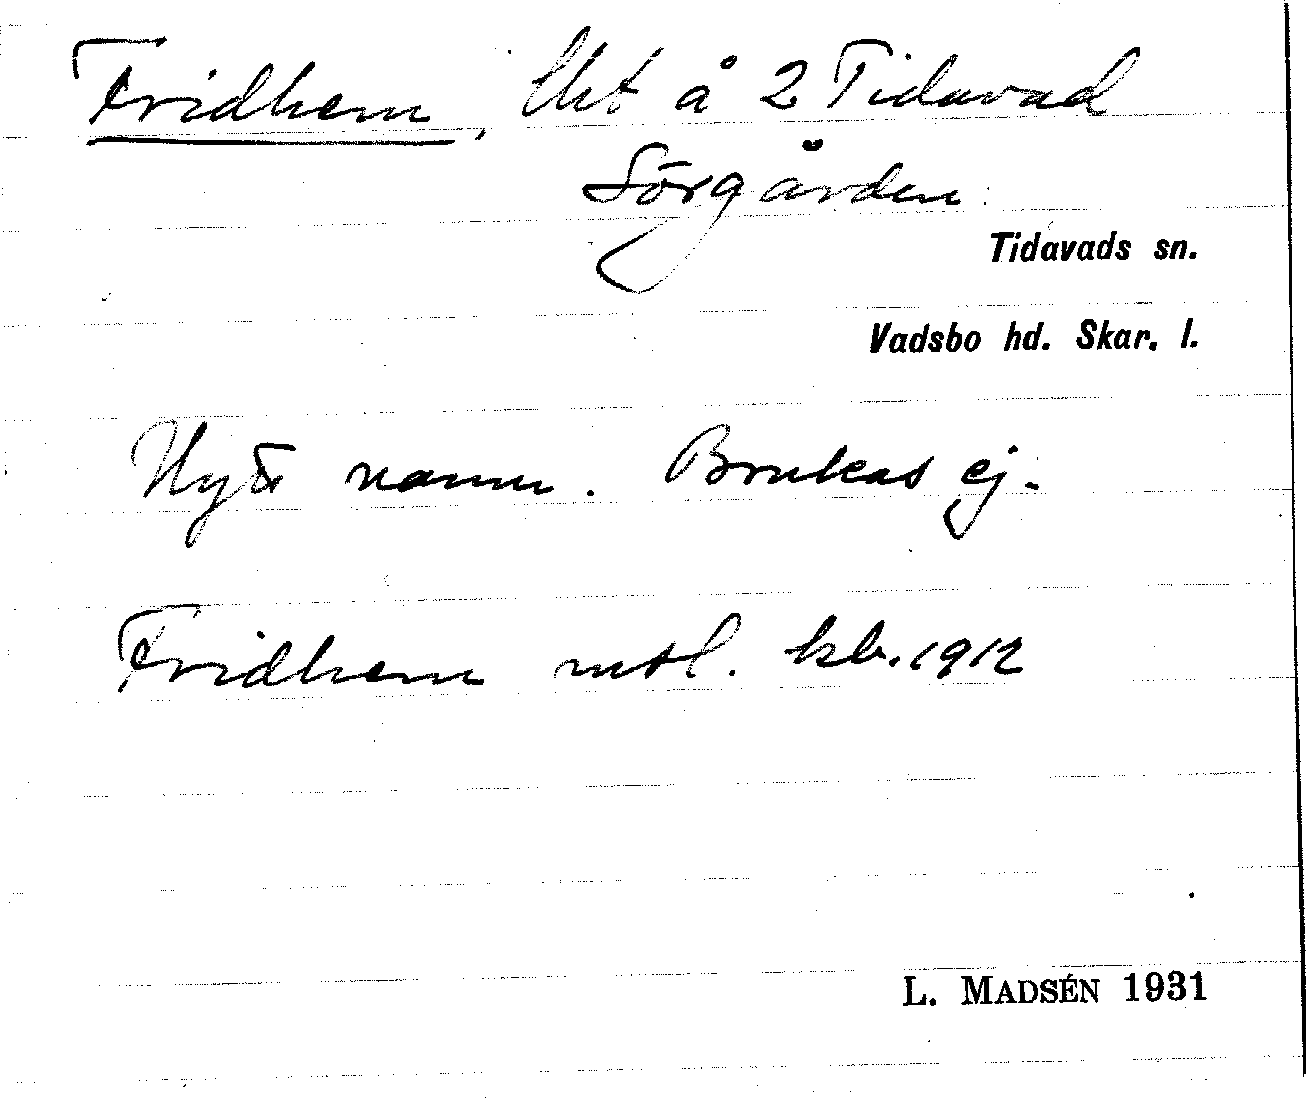 Fridhem, Lht å 2 Tidavad
Sörgården
Tidavads sn.
Vadsbo hd. Skar. l.
Nytt namn. Brukas ej.
Fridhem mtl. kb. 1912
L. MADSÉN 1931